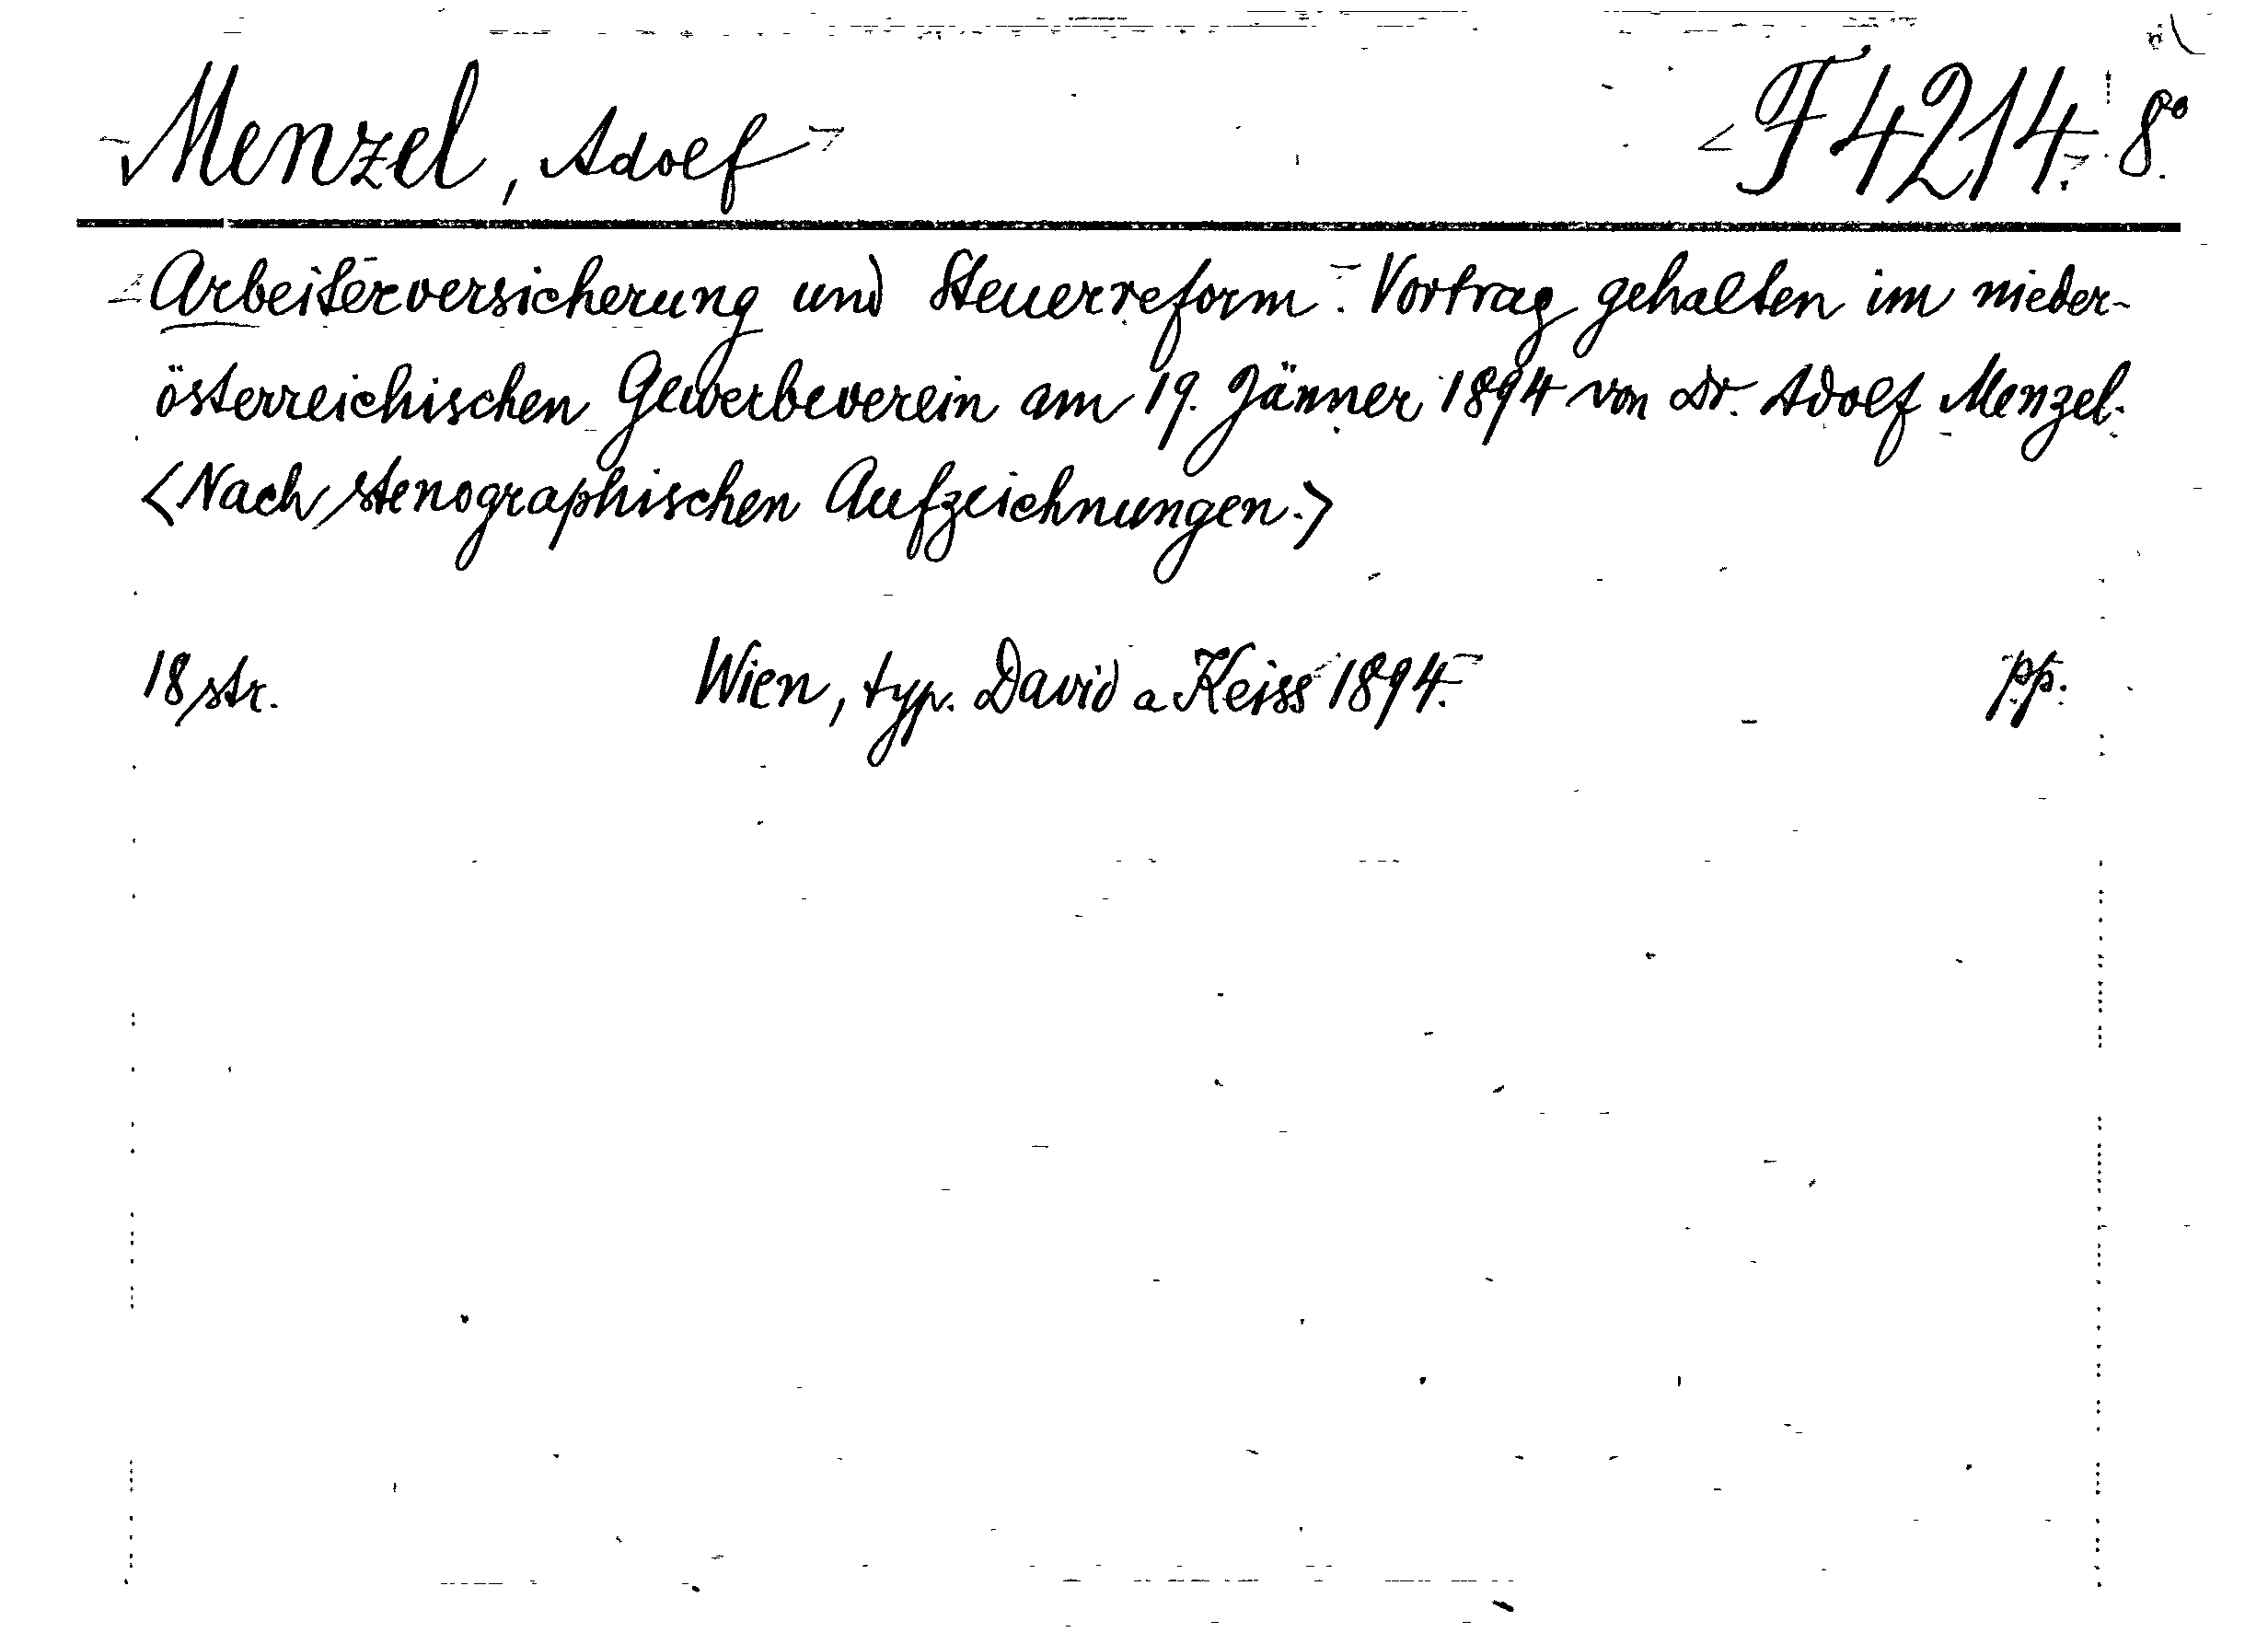 Menzel, Adolf F 4214. 8°.
Arbeiterversicherung und Steuerreform. Vortrag gehalten im nieder-
österreichischen Gewerbeverein am 19. Jänner 1894 von Dr. Adolf Menzel.
<Nach stenographischen Aufzeichnungen.>
18 str. Wien, typ. David a Keiss 1894. pp.